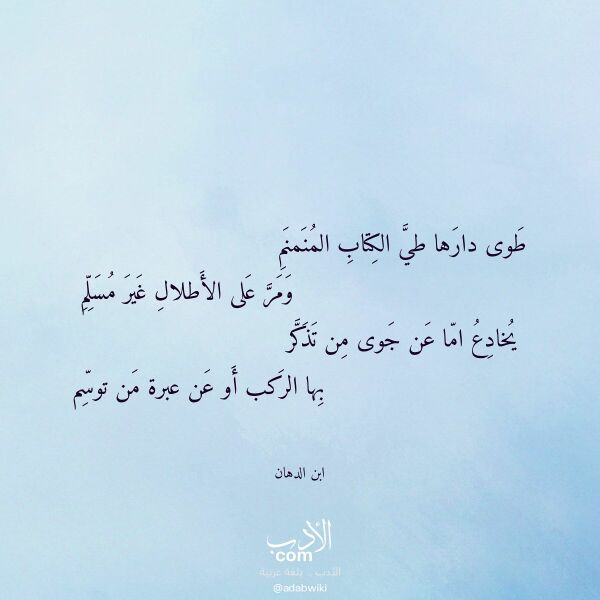 طَوى دارَها طيَّ الكِتابِ المُنَمنَمِ
وَمَرَّ عَلى الأَطلالِ غَيرَ مُسَلِّمِ
يُخادِعُ امّا عَن جَوى مِن تَذَكَّر
بِها الرَكب أَو عَن عبرة مَن توسِّم
ابن الدهان
الأدب
com
الأدب .. بلغة عربية
@adabwiki